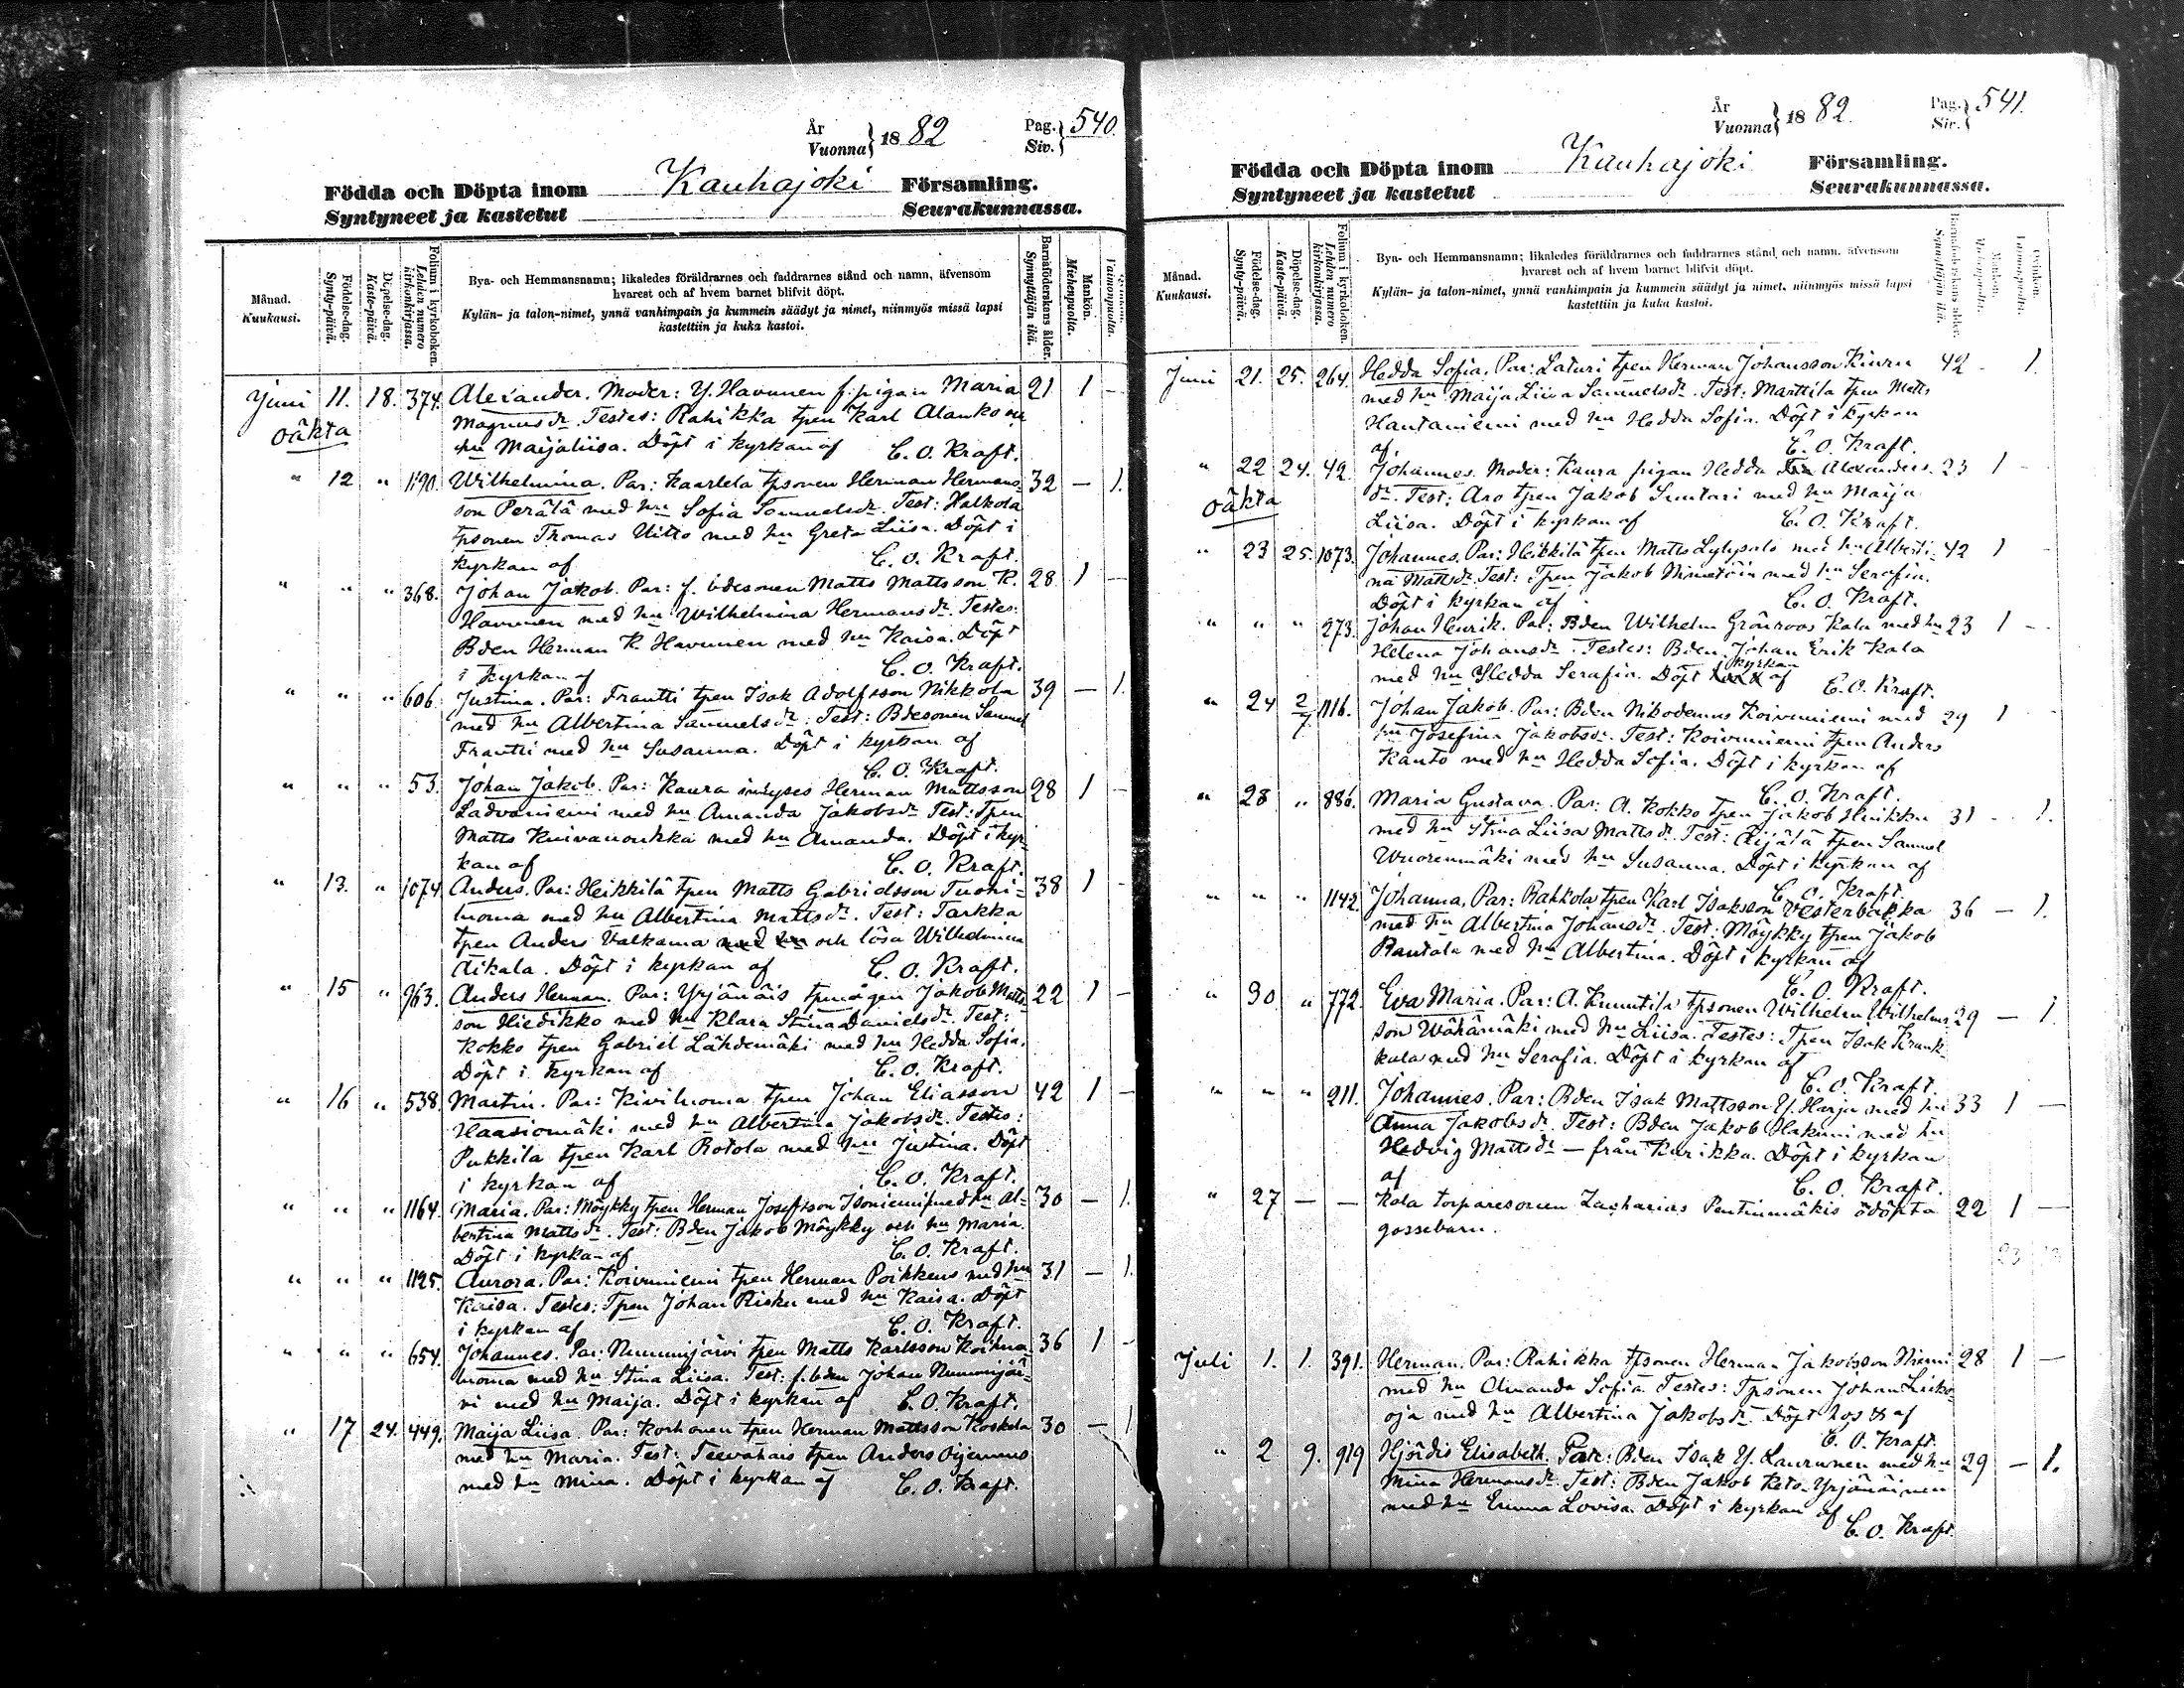 År
Vuonna } 1882
Pag.
Siv. } 540.
Födda och Döpta inom Kauhajoki Församling.
Syntyneet ja kastetut Seurakunnassa.
Månad.
Kuukausi.
Födelse-dag.
Synty-päivä.
Döpelse-dag.
Kaste-päivä.
Folium i kyrkoboken.
Lehden numero
kirkonkirjassa.
Bya- och Hemmansnamn; likaledes föräldrarnes och faddrarnes stånd och namn, äfvensom
hvarest och af hvem barnet blifvit döpt.
Kylän- ja talon-nimet, ynnä vanhimpain ja kummein säädyt ja nimet, niinmyös missä lapsi
kastettiin ja kuka kastoi.
Barnaföderskans ålder.
Synnyttäjän ikä.
Mankön.
Miehenpuolta.
Vaimonpuolta.
Juni 11. 18. 374. Alexander. Moder: Y. Havunen f. pigan Maria 21 1 –
oäkta Magnusdr. Testes: Rahikka tpen Karl Alanko m.
hu Maijaliisa. Döpt i kyrkan af C. O. Kraft.
" 12 " 1190. Wilhelmina. Par: Kaarlela tpsonen Herman Hermans- 32 – 1.
son Perälä med hu Sofia Samuelsdr. Test: Halkola
tpsonen Thomas Uitto med hu Greta Liisa. Döpt i
kyrkan af C. O. Kraft.
" " " 368. Johan Jakob. Par: f. bdesonen Matts Mattsson K. 28 1 –
Havunen med hu Wilhelmina Hermansdr. Testes:
Bden Herman K. Havunen med hu Kaisa. Döpt
i kyrkan af C. O. Kraft.
" " " 606. Justina. Par: Frantti tpen Isak Adolfsson Nikkola 39 – 1.
med hu Albertina Samuelsdr. Test: Bdesonen Samuel
Frantti med hu Susanna. Döpt i kyrkan af
C. O. Kraft.
" " " 53. Johan Jakob. Par: Kaura inhyses Herman Mattsson 28 1 –
Ladvaniemi med hu Amanda Jakobsdr. Test: Tpen
Matts Knivanoukka med hu Amanda. Döpt i kyr-
kan af C. O. Kraft.
" 13. " 1074. Anders. Par: Heikkilä tpen Matts Gabrielsson Tuomi- 38 1 –
luoma med hu Albertina Mattsdr. Test: Tarkka
tpen Anders Valkama med hu och lösa Wilhelmina
Aikala. Döpt i kyrkan af C. O. Kraft.
" 15 " 963. Anders Herman. Par: Yrjänäis tpmågen Jakob Matts- 22 1 –
son Hiedikko med hu Klara Stina Danielsdr. Test:
Kokko tpen Gabriel Lähdemäki med hu Hedda Sofia.
Döpt i kyrkan af C. O. Kraft.
" 16 " 538. Martin. Par: Kiviluoma tpen Johan Eliasson 42 1 –
Haasiomäki med hu Albertina Jakobsdr. Testes:
Pukkila tpen Karl Rotola med hu Justina. Döpt
i kyrkan af C. O. Kraft.
" " " 1164. Maria. Par: Möykky tpen Herman Josefsson Isoniemi med hu Al- 30 – 1.
bertina Mattsdr. Test: Bden Jakob Möykky och hu Maria.
Döpt i kyrkan af C. O. Kraft.
" " " 1125. Aurora. Par: Koivuniemi tpen Herman Poikkeus med hu 31 – 1.
Kaisa. Testes: Tpen Johan Risku med hu Kaisa. Döpt
i kyrkan af C. O. Kraft.
" " " 654. Johannes. Par: Nummijärvi tpen Matts Karlsson Koihna- 36 1 –
luoma med hu Stina Liisa. Test: f. bden Johan Nummijär-
vi med hu Maija. Döpt i kyrkan af C. O. Kraft.
" 17 24. 449. Maija Liisa. Par: Korhonen tpen Herman Mattsson Koskela 30 – 1
med hu Maria. Test: Teevahais tpen Anders Ojennus
med hu Mina. Döpt i kyrkan af C. O. Kraft.
År
Vuonna } 1882.
Pag.
Siv. } 541.
Födda och Döpta inom Kauhajoki Församling.
Syntyneet ja kastetut Seurakunnassa.
Månad.
Kuukausi.
Födelse-dag.
Synty-päivä.
Döpelse-dag.
Kaste-päivä.
Folium i kyrkoboken.
Lehden numero
kirkonkirjassa.
Bya- och Hemmansnamn; likaledes föräldrarnes och faddrarnes stånd och namn, äfvensom
hvarest och af hvem barnet blifvit döpt.
Kylän- ja talon-nimet, ynnä vanhimpain ja kummein säädyt ja nimet, niinmyös missä lapsi
kastettiin ja kuka kastoi.
Barnaföderskans ålder.
Synnyttäjän ikä.
Mankön.
Miehenpuolta.
Qvinkön.
Vaimonpuolta.
Juni 21. 25. 264. Hedda Sofia. Par: Laturi tpen Herman Johansson Kiuru 42 – 1.
med hu Maija Liisa Samuelsdr. Test: Marttila tpen Matts
Hautaniemi med hu Hedda Sofia. Döpt i kyrkan
af C. O. Kraft.
" 22 24. 42. Johannes. Moder: Kaura pigan Hedda Alexanders- 23 1 –
oäkta dr. Test: Aro tpen Jakob Suutari med hu Maija
Liisa. Döpt i kyrkan af C. O. Kraft.
" 23 25. 1073. Johannes. Par: Heikkilä tpen Matts Lylysalo med hu Alberti- 42 1 –
na Mattsdr. Test: Tpen Jakob Nimetöin med hu Serafia.
Döpt i kyrkan af C. O. Kraft.
" " " 273. Johan Henrik. Par: Bden Wilhelm Grönroos Kala med hu 23 1 –
Helena Johansdr. Testes: Bden Johan Erik Kala
med hu Hedda Serafia. Döpt i kyrkan af
C. O. Kraft.
" 24 2/7 1116. Johan Jakob. Par: Bden Nikodemus Koivuniemi med 29 1 –
hu Josefina Jakobsdr. Test: Koivuniemi tpen Anders
Kanto med hu Hedda Sofia. Döpt i kyrkan af
C. O. Kraft.
" 28. " 886. Maria Gustava. Par: A. Kokko tpen Jakob Huikku 31 – 1.
med hu Stina Liisa Mattsdr. Test: Äijälä tpen Samuel
Wuorenmäki med hu Susanna. Döpt i kyrkan af
C. O. Kraft.
" " " 1142. Johanna. Par: Rahkola tpen Karl Isaksson Vesterbacka 36 – 1.
med hu Albertina Johansdr. Test: Möykky tpen Jakob
Rantala med hu Albertina. Döpt i kyrkan af
C. O. Kraft.
" 30 " 772. Eva Maria. Par: A. Knuutila tpsonen Wilhelm Wilhelms- 29 – 1.
son Wähämäki med hu Liisa. Testes: Tpen Isak Krank-
kala med hu Serafia. Döpt i kyrkan af
C. O. Kraft.
" " " 211. Johannes. Par: Bden Isak Mattsson Y. Harju med hu 33 1 –
Anna Jakobsdr. Test: Bden Jakob Hakuni med hu
Hedvig Mattsdr – från Kurikka. Döpt i kyrkan
af C. O. Kraft.
" 27 – – Kala torparesonen Zacharias Pentinmäkis odöpta 22 1 –
gossebarn.
23 12
Juli 1. 1. 391. Herman. Par: Rahikka tpsonen Herman Jakobsson Niemi 28 1 –
med hu Amanda Sofia. Testes: Tpsonen Johan Liiko-
oja med hu Albertina Jakobsdr. Döpt hos af
C. O. Kraft.
" 2 9. 919 Hjördis Elisabeth. Par: Bden Isak Y. Laurunen med hu 29 – 1.
Mina Hermansdr. Test: Bden Jakob Keto-Yrjänäinen
med hu Emma Lovisa. Döpt i kyrkan af
C. O. Kraft.